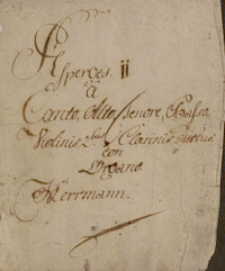 Asperges. ii
à
Canto, Alto, Tenore, Basso,
Violinis 2bus Clarinis
con
Organo
Herrmann.